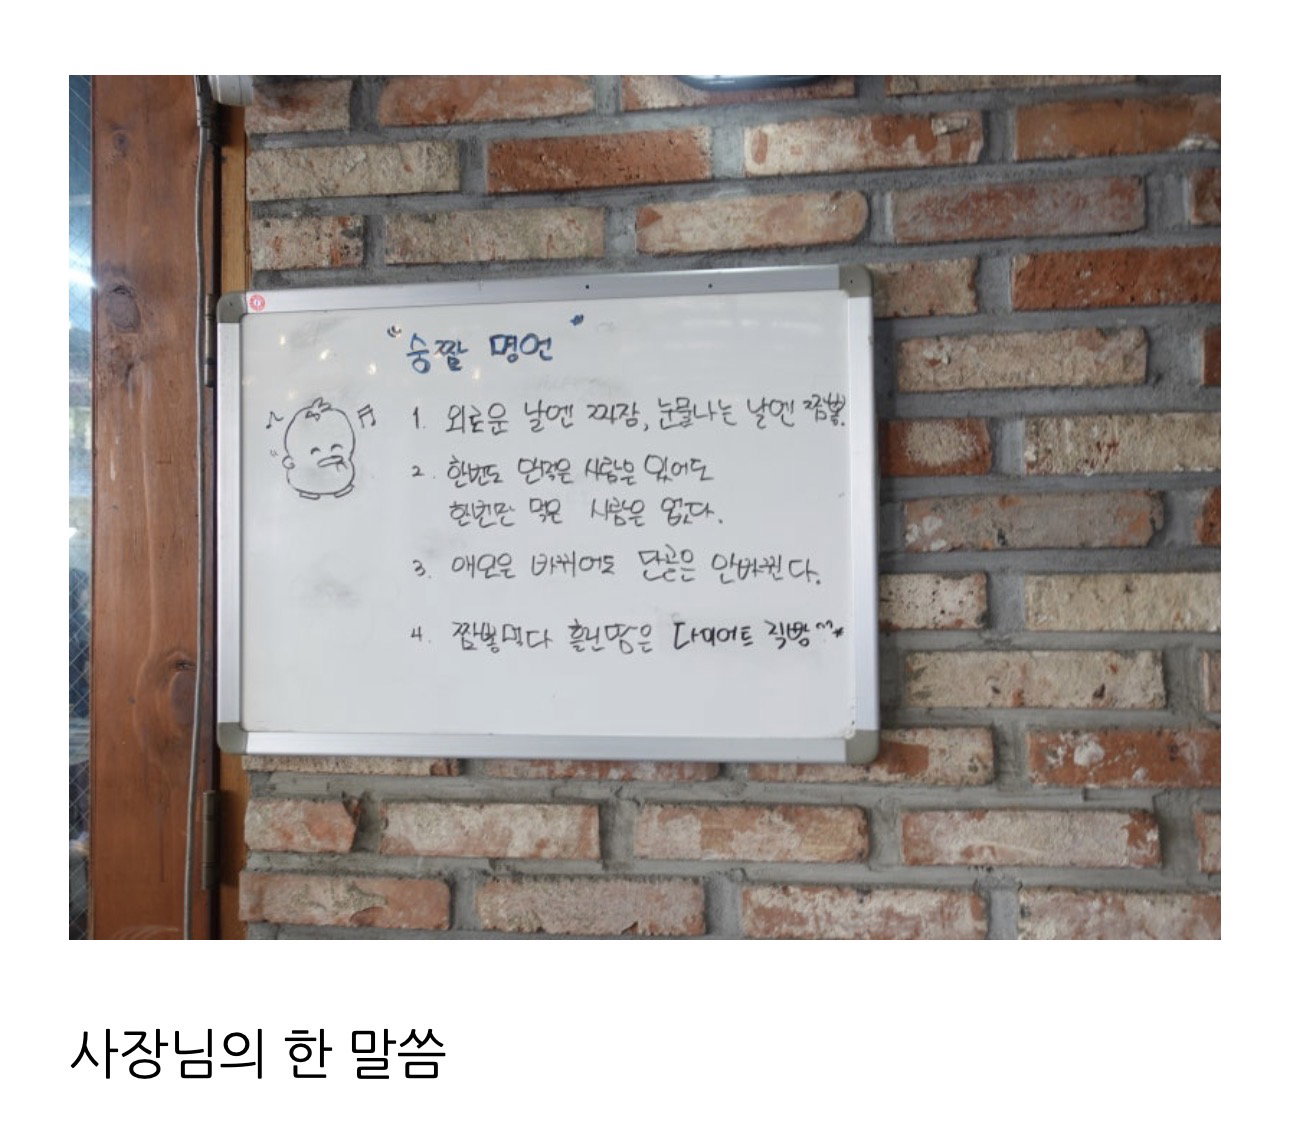 "숭짤 명언"
1. 외로운 날엔 짜장, 눈물나는 날엔 짬뽕.
2. 한번도 안먹은 사람은 있어도
한번만 먹은 사람은 없다.
3. 애인은 바뀌어도 단골은 안바뀐다.
4. 짬뽕먹다 흘린땀은 다이어트 직빵^^*
사장님의 한 말씀